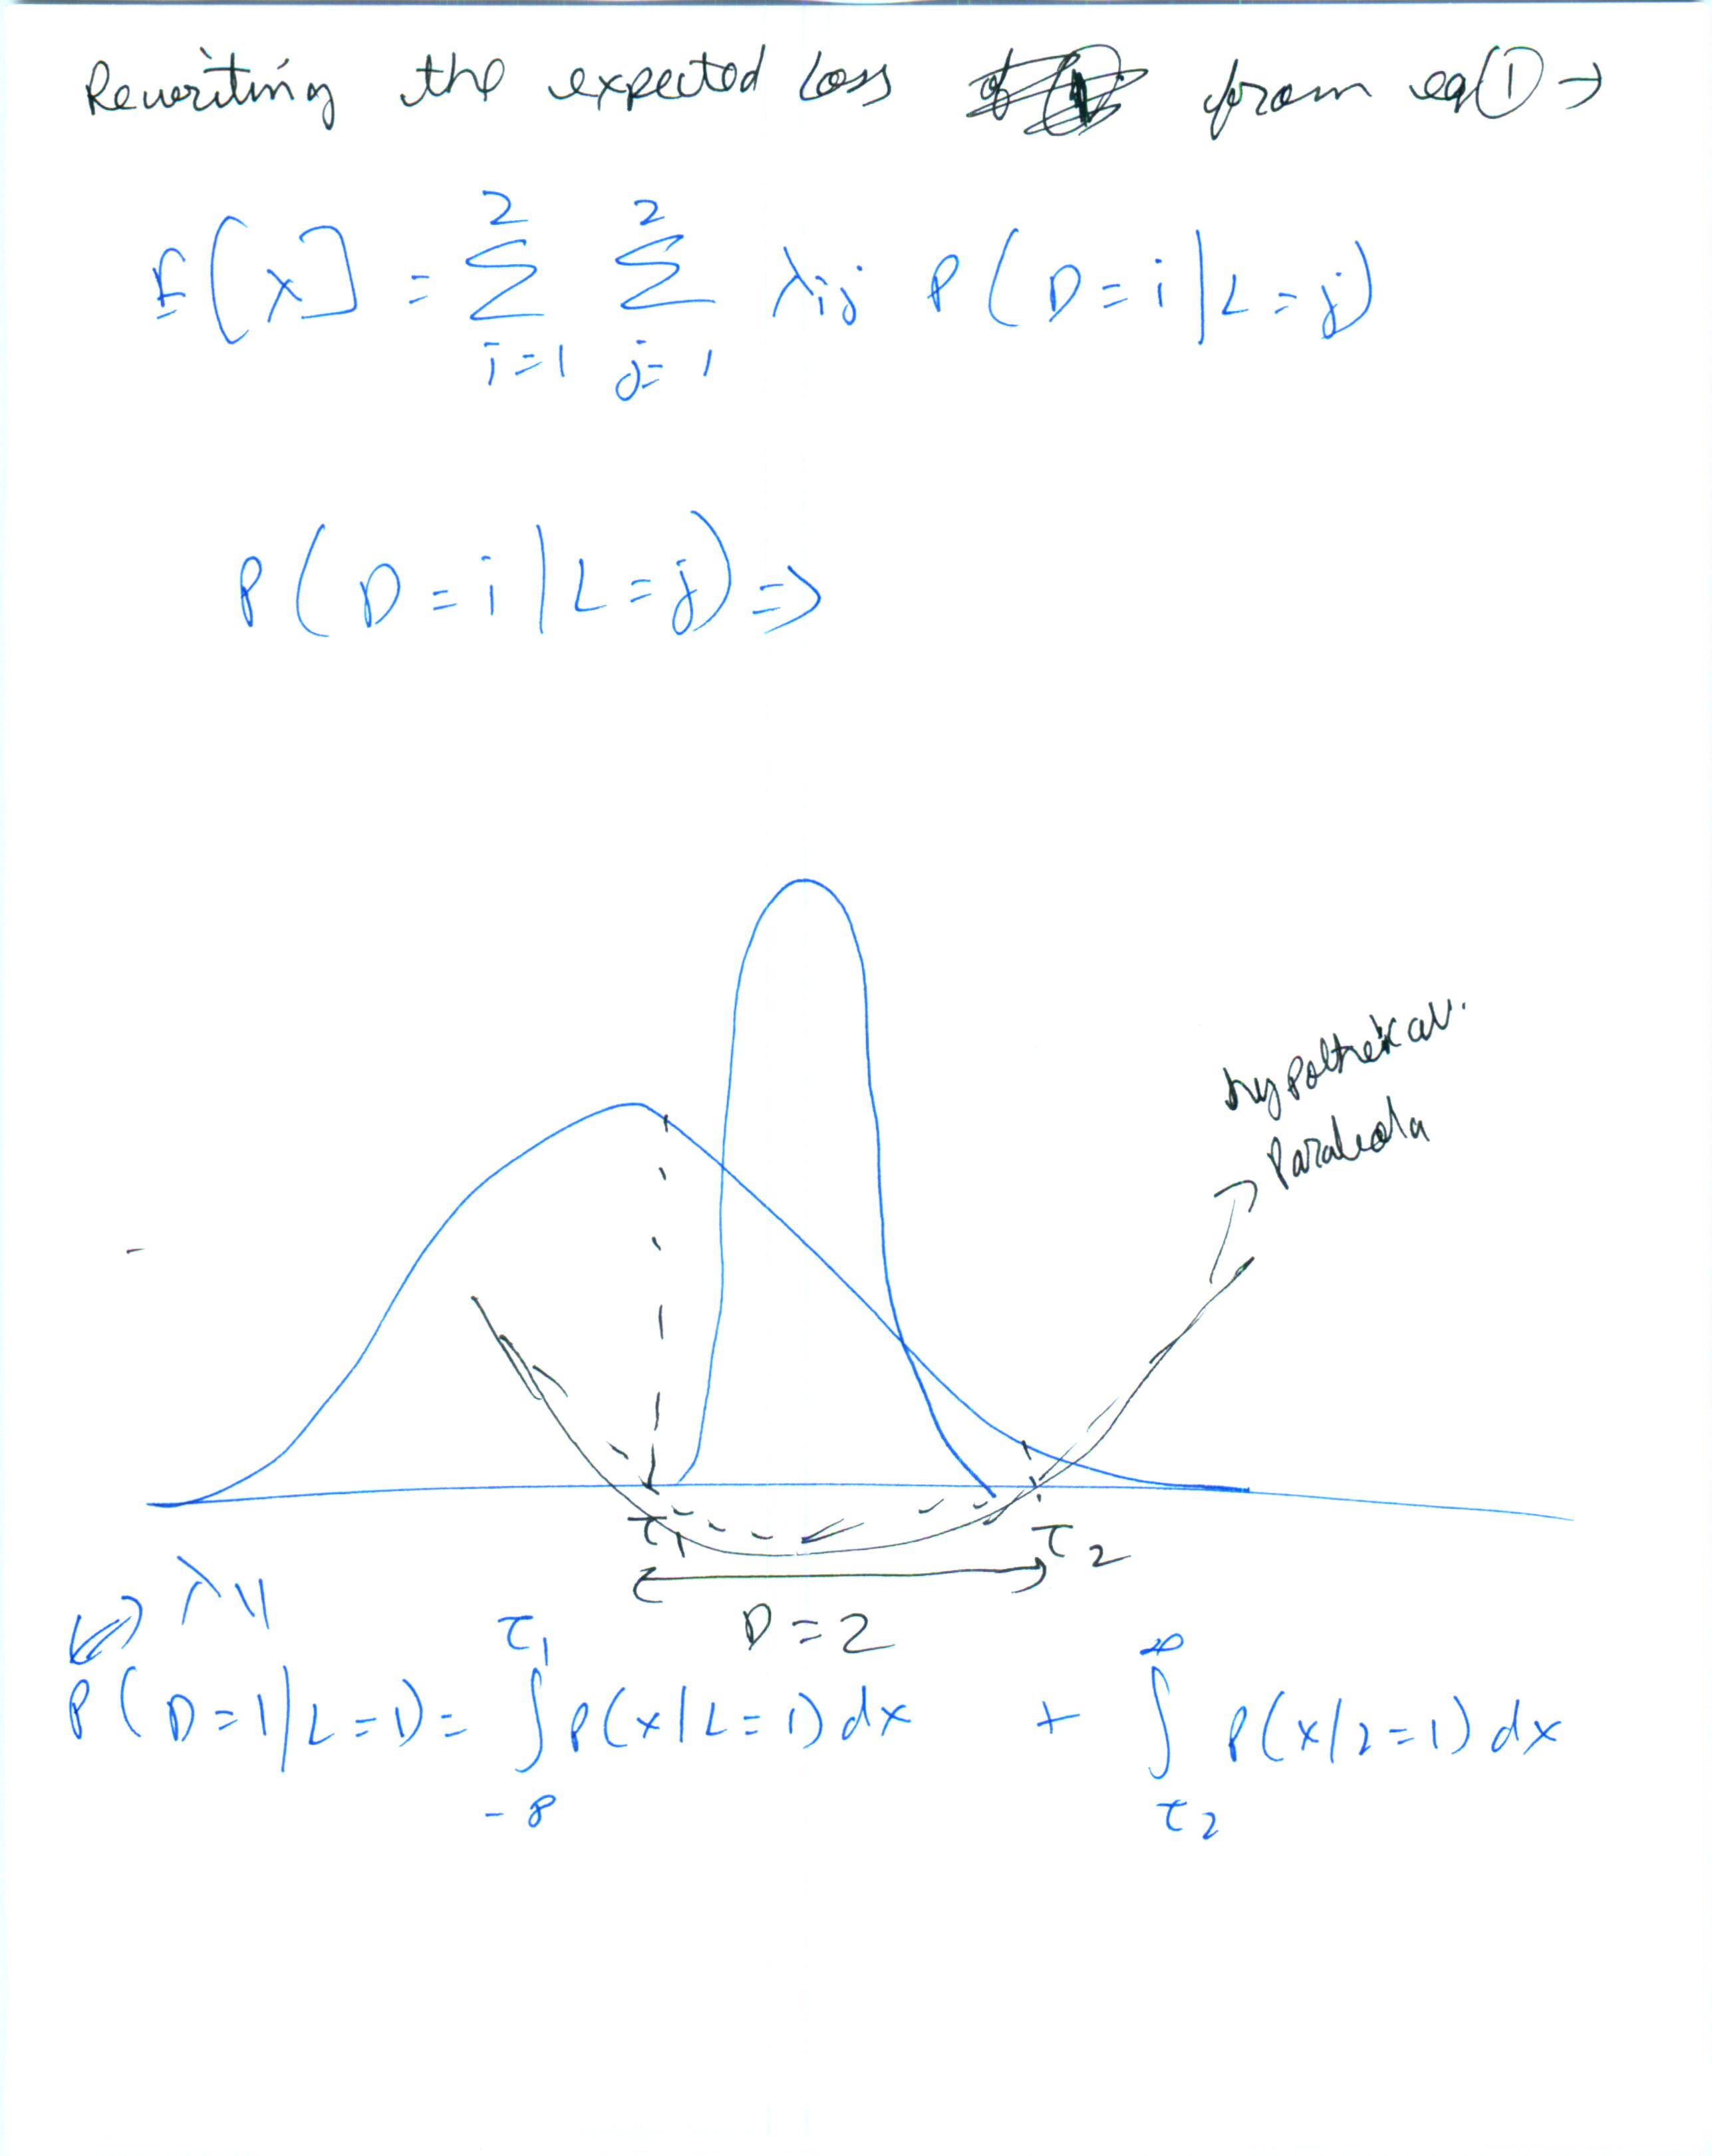 Rewriting the expected loss from eq(1) →
E[X] = 2∑i=1 2∑j=1 λij P(D=i|L=j)
P(D=i|L=j) ⇒
hypothetical
Parabola
τ1 τ2
D=2
λ11
P(D=1|L=1) = τ1∫-∞ P(x|L=1)dx + ∞∫τ2 P(x|L=1)dx